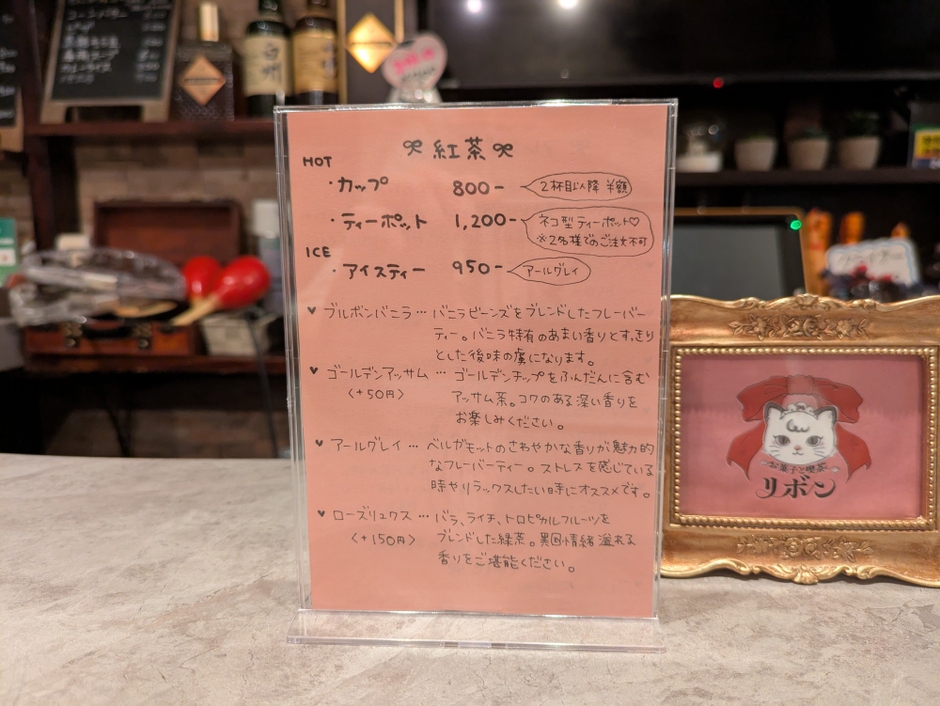 紅茶
HOT
・カップ 800- 2杯目以降 半額
・ティーポット 1,200- ネコ型ティーポット♡
※2名様でのご注文不可
ICE
・アイスティー 950- アールグレイ
♥ ブルボンバニラ … バニラビーンズをブレンドしたフレーバー
ティー。バニラ特有のあまい香りとすっきり
とした後味の虜になります。
♥ ゴールデンアッサム … ゴールデンチップをふんだんに含む
〈+50円〉 アッサム茶。コクのある深い香りを
お楽しみください。
♥ アールグレイ … ベルガモットのさわやかな香りが魅力的
なフレーバーティー。ストレスを感じている
時やリラックスしたい時にオススメです。
♥ ローズリュクス … バラ、ライチ、トロピカルフルーツを
〈+150円〉 ブレンドした緑茶。異国情緒溢れる
香りをご堪能ください。
お菓子と喫茶
リボン
白州